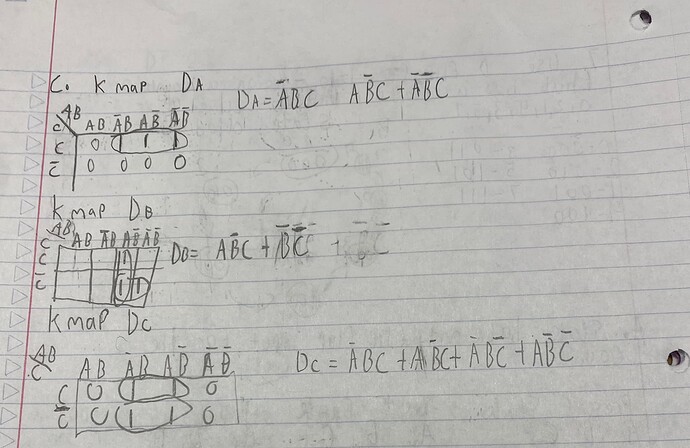 C. K map DA
DA = A̅BC AB̅C + A̅B̅C
AB
C AB A̅B AB̅ A̅B̅
C 0 1 1 1
C̅ 0 0 0 0
K map DB
AB
C AB A̅B AB̅ A̅B̅
C 1
C̅ 1 1
DB= AB̅C + B̅C̅ +
K map DC
AB
C AB A̅B AB̅ A̅B̅
C 0 1 1 0
C̅ 0 1 1 0
DC = A̅BC + AB̅C + A̅BC̅ + AB̅C̅